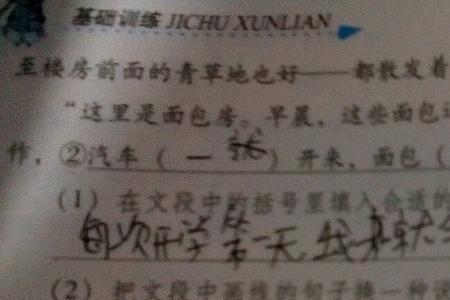 基础训练 JICHU XUNLIAN
至楼房前面的青草地也好——都散发着
“这里是面包房。早晨，这些面包
作，②汽车（一就）开来，面包（
（1）在文段中的括号里填入合适的
每次开学第一天，我
（2）把文段中画线的句子换一种说